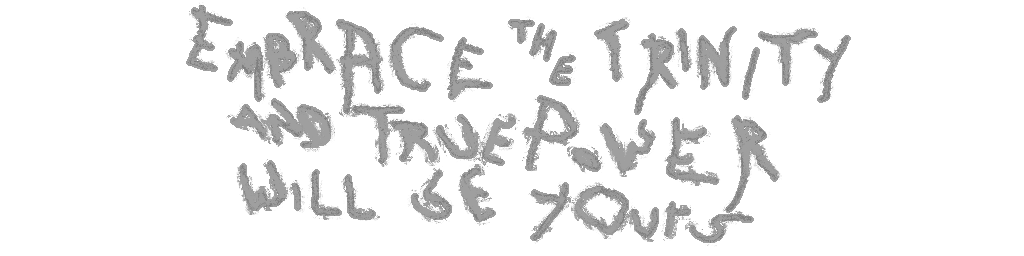 EMBRACE THE TRINITY
AND TRUE POWER
WILL BE YOURS